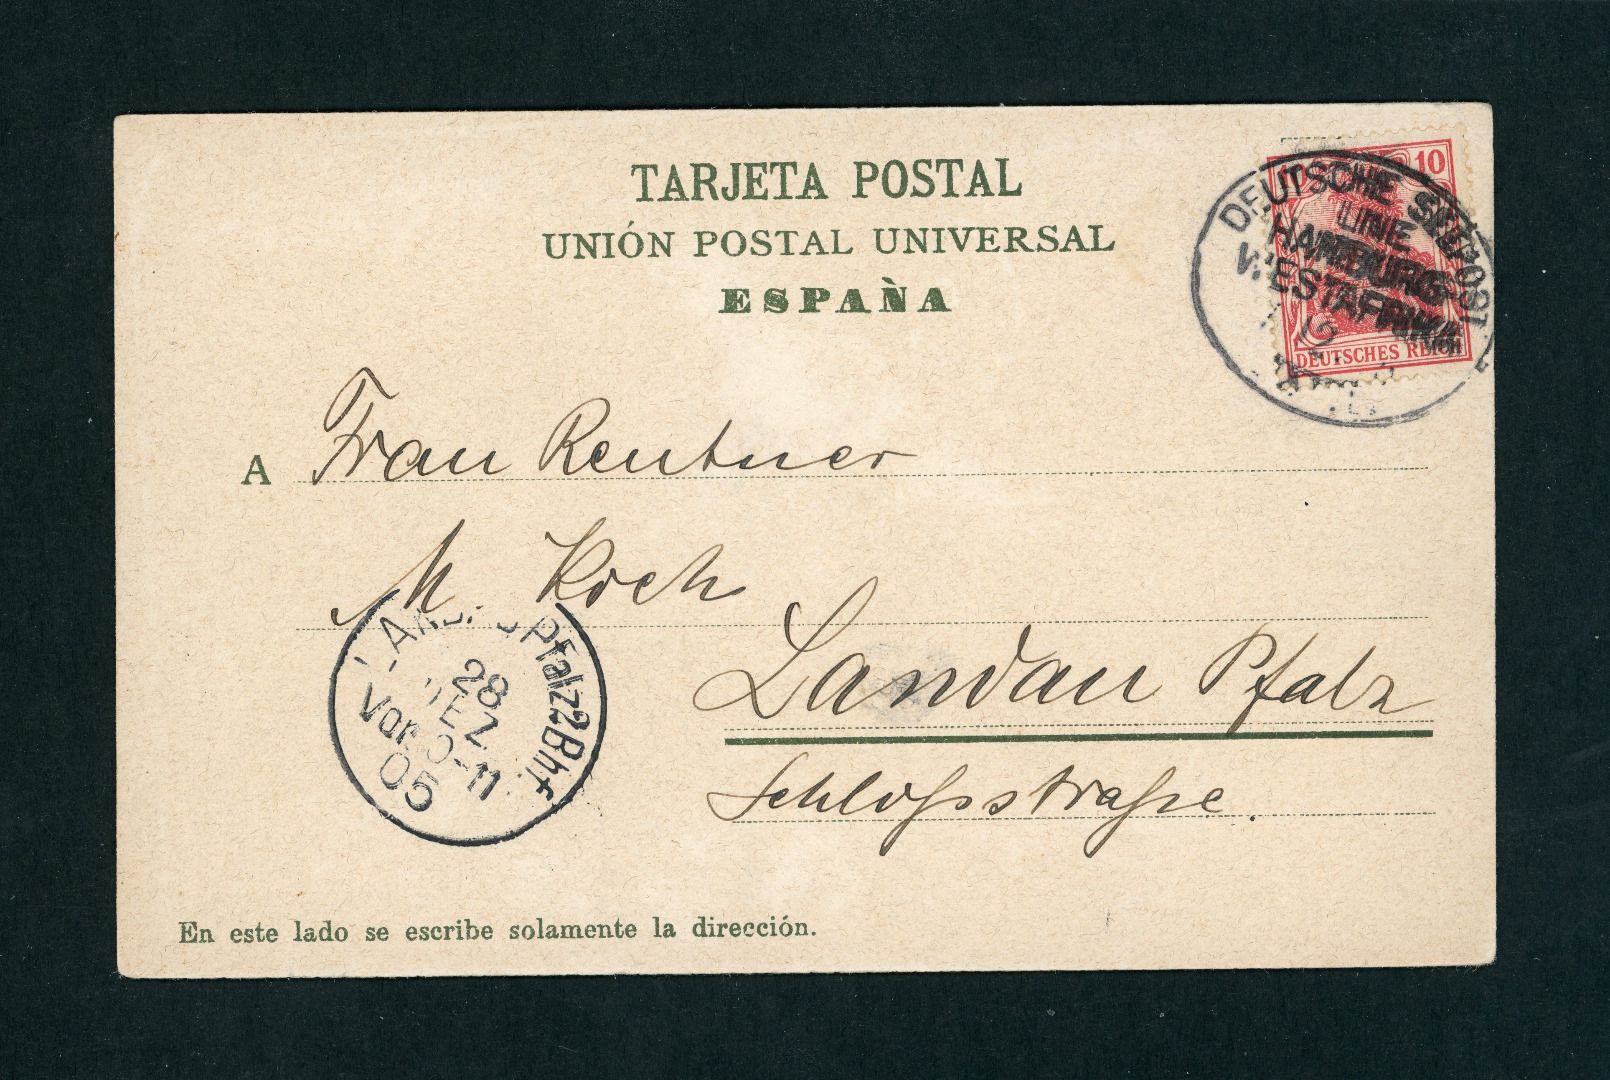 TARJETA POSTAL
UNIÓN POSTAL UNIVERSAL
ESPAÑA
10
DEUTSCHE SEEPOST
LINIE
HAMBURG-
WESTAFRIKA
DEUTSCHES REICH
A Frau Rentner
M. Koch
Landau Pfalz
Schloßstraße.
LANDAU Pfalz 2 Bhf
28
DEZ
Vor 10-11
05
En este lado se escribe solamente la dirección.